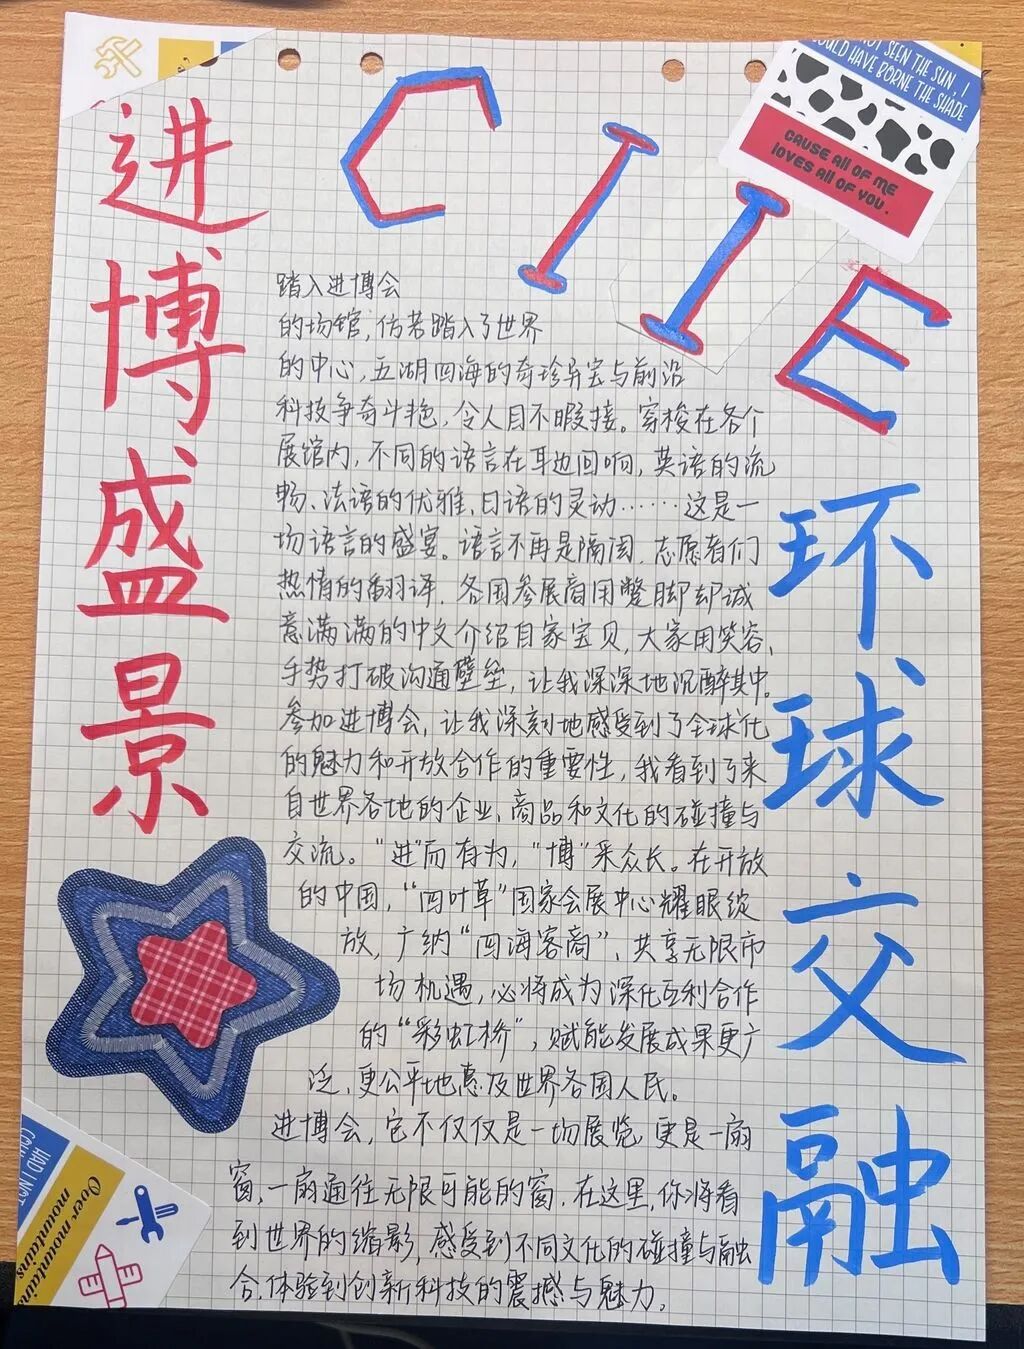 进博盛景
CIIE
环球交融
NOT SEEN THE SUN, I
COULD HAVE BORNE THE SHADE
CAUSE All OF ME
lOVES All OF YOU.
踏入进博会
的场馆,仿若踏入了世界
的中心,五湖四海的奇珍异宝与前沿
科技争奇斗艳,令人目不暇接。穿梭在各个
展馆内,不同的语言在耳边回响,英语的流
畅、法语的优雅、日语的灵动……这是一
场语言的盛宴。语言不再是隔阂,志愿者们
热情的翻译,各国参展商用蹩脚却诚
意满满的中文介绍自家宝贝,大家用笑容、
手势打破沟通壁垒,让我深深地沉醉其中。
参加进博会,让我深刻地感受到了全球化
的魅力和开放合作的重要性,我看到了来
自世界各地的企业、商品和文化的碰撞与
交流。“进”而有为,“博”采众长。在开放
的中国,“四叶草”国家会展中心耀眼绽
放,广纳“四海客商”、共享无限市
场机遇,必将成为深化互利合作
的“彩虹桥”,赋能发展成果更广
泛、更公平地惠及世界各国人民。
进博会,它不仅仅是一场展览,更是一扇
窗,一扇通往无限可能的窗,在这里,你将看
到世界的缩影,感受到不同文化的碰撞与融
合,体验到创新科技的震撼与魅力。
HAD I NOT
Over mountains
mountains